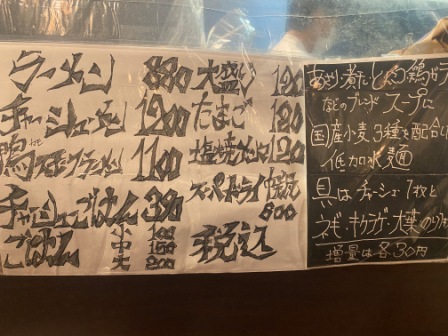 ラーメン 880
チャーシューメン
鴨 1100
チャーシューごはん 390
ごはん 小 100
中 150
大 200
大盛り 120
たまご 120
塩焼 120
スーパードライ 中瓶
600
税込
あさり煮干と鶏ガラ
などのブレンドスープに
国産小麦3種を配合
低加水麺
具はチャーシュー1枚と
ネギ・キクラゲ・大葉の
増量は各30円